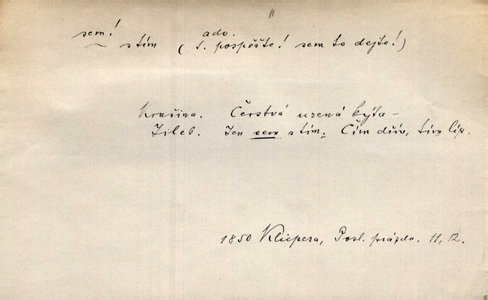 sem! adv.
~ s tím (t. pospěšte! sem to dejte!)
Krušina. Čerstvá uzená kýta –
Zileb. Jen sem s tím; Čím dřív, tím líp.
1850 Klicpera, Posl. prázdn. 11, 12.